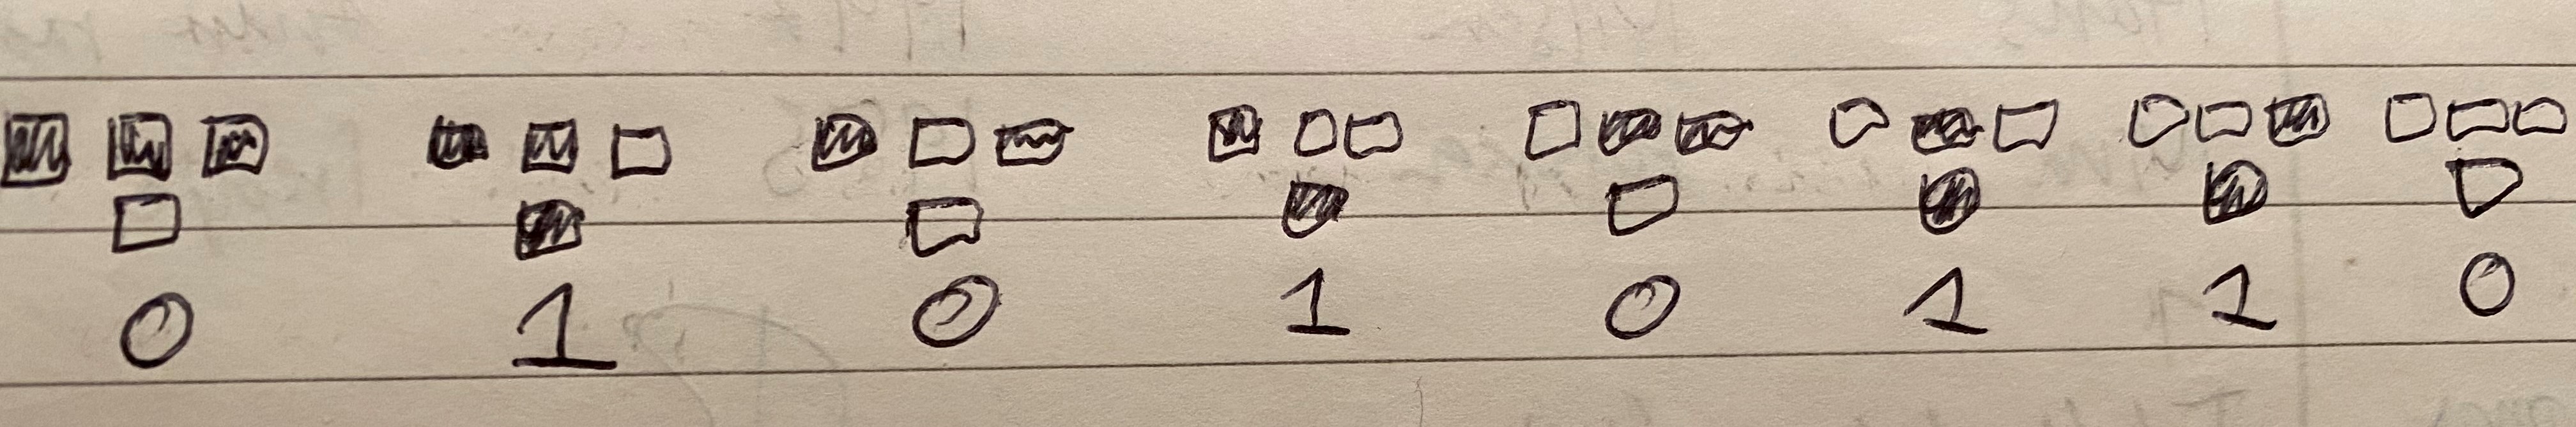 0 1 0 1 0 1 1 0